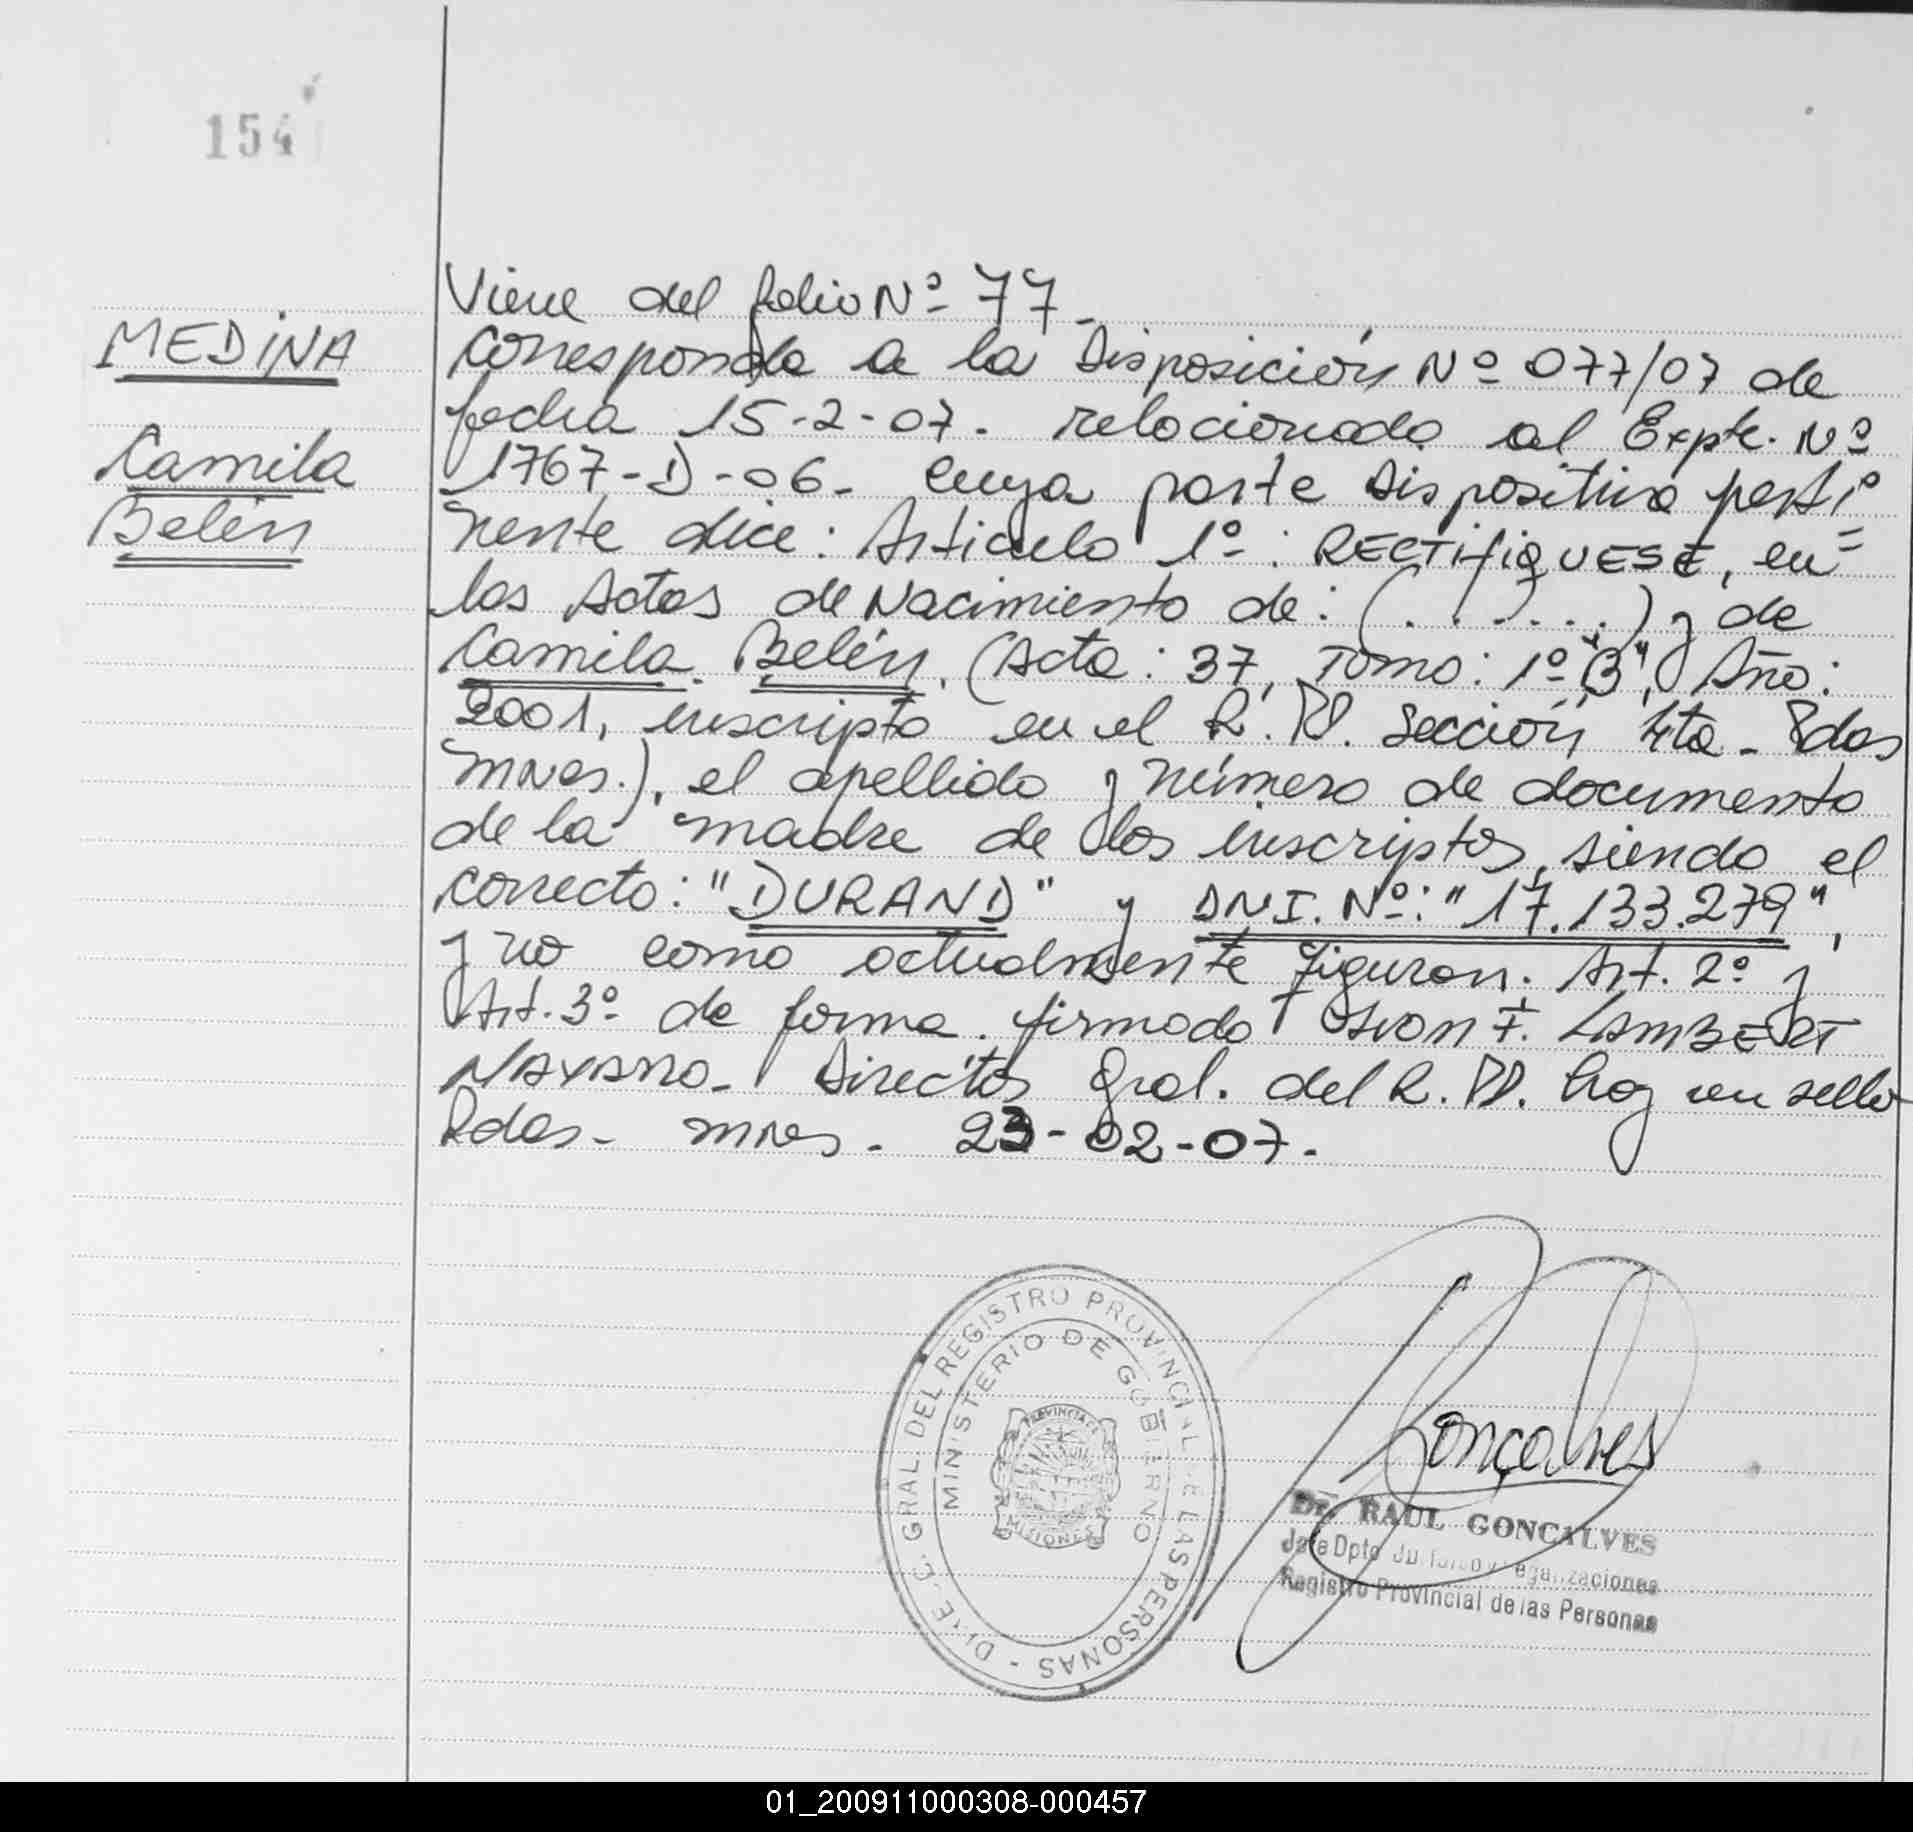 154
MEDINA
Camila
Belén
Viene del folio Nº 77-
Corresponde a la Disposición Nº 077/07 de
fecha 15-2-07. relacionado al Expte. Nº
1767-D-06- cuya parte dispositiva perti=
nente dice: Articulo 1º: RECTIFIQUESE, en
las Actas de Nacimiento de: (.......) y de
Camila Belén, (Acta: 37, Tomo: 1º "B", Año:
2001, inscripta en el R. PP. Sección 4ta - Pdas
mnes.), el apellido y número de documento
de la madre de los inscriptos, siendo el
correcto: "DURAND" y DNI. Nº: "17.133.279",
y no como actualmente figuran. Art. 2º y
Art. 3º de forma. firmado F. LAMBERT
Director Gral. del R. PP. hoy en sello
Pdas- mnes. 23-02-07.
DIREC. GRAL. DEL REGISTRO PROVINCIAL DE LAS PERSONAS -
MINISTERIO DE GOBIERNO
PROVINCIA DE
MISIONES
Gonçalves
Dr. RAUL GONCALVES
Jefe Dpto Jurídico y Legalizaciones
Registro Provincial de las Personas
01_200911000308-000457